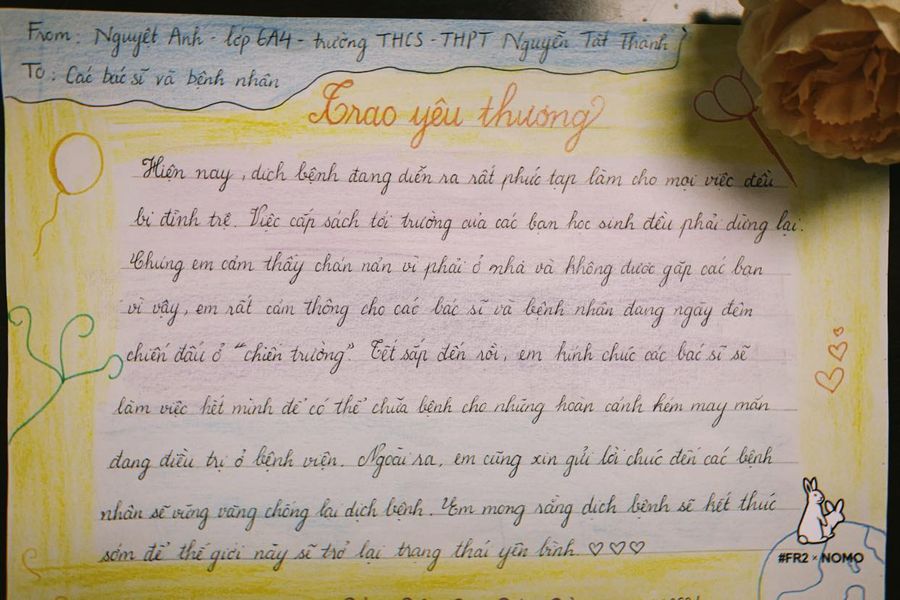 From: Nguyệt Anh - lớp 6A4 - trường THCS - THPT Nguyễn Tất Thành
To: Các bác sĩ và bệnh nhân
Trao yêu thương
Hiện nay, dịch bệnh đang diễn ra rất phức tạp làm cho mọi việc đều
bị đình trệ. Việc cấp sách tới trường của các bạn học sinh đều phải dừng lại.
Chúng em cảm thấy chán nản vì phải ở nhà và không được gặp các bạn
vì vậy, em rất cảm thông cho các bác sĩ và bệnh nhân đang ngày đêm
chiến đấu ở "chiến trường". Tết sắp đến rồi, em kính chúc các bác sĩ sẽ
làm việc hết mình để có thể chữa bệnh cho những hoàn cảnh kém may mắn
đang điều trị ở bệnh viện. Ngoài ra, em cũng xin gửi lời chúc đến các bệnh
nhân sẽ vững vàng chống lại dịch bệnh. Em mong rằng dịch bệnh sẽ kết thúc
sớm để thế giới này sẽ trở lại trạng thái yên bình. ♡♡♡
#FR2 × NOMO